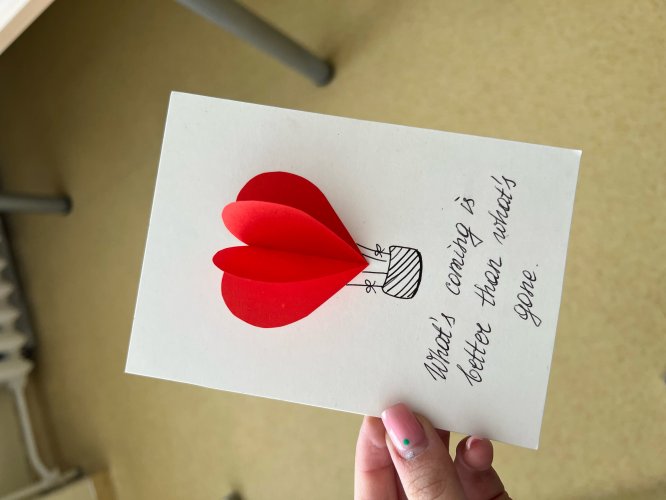 What's coming is
better than what's
gone.